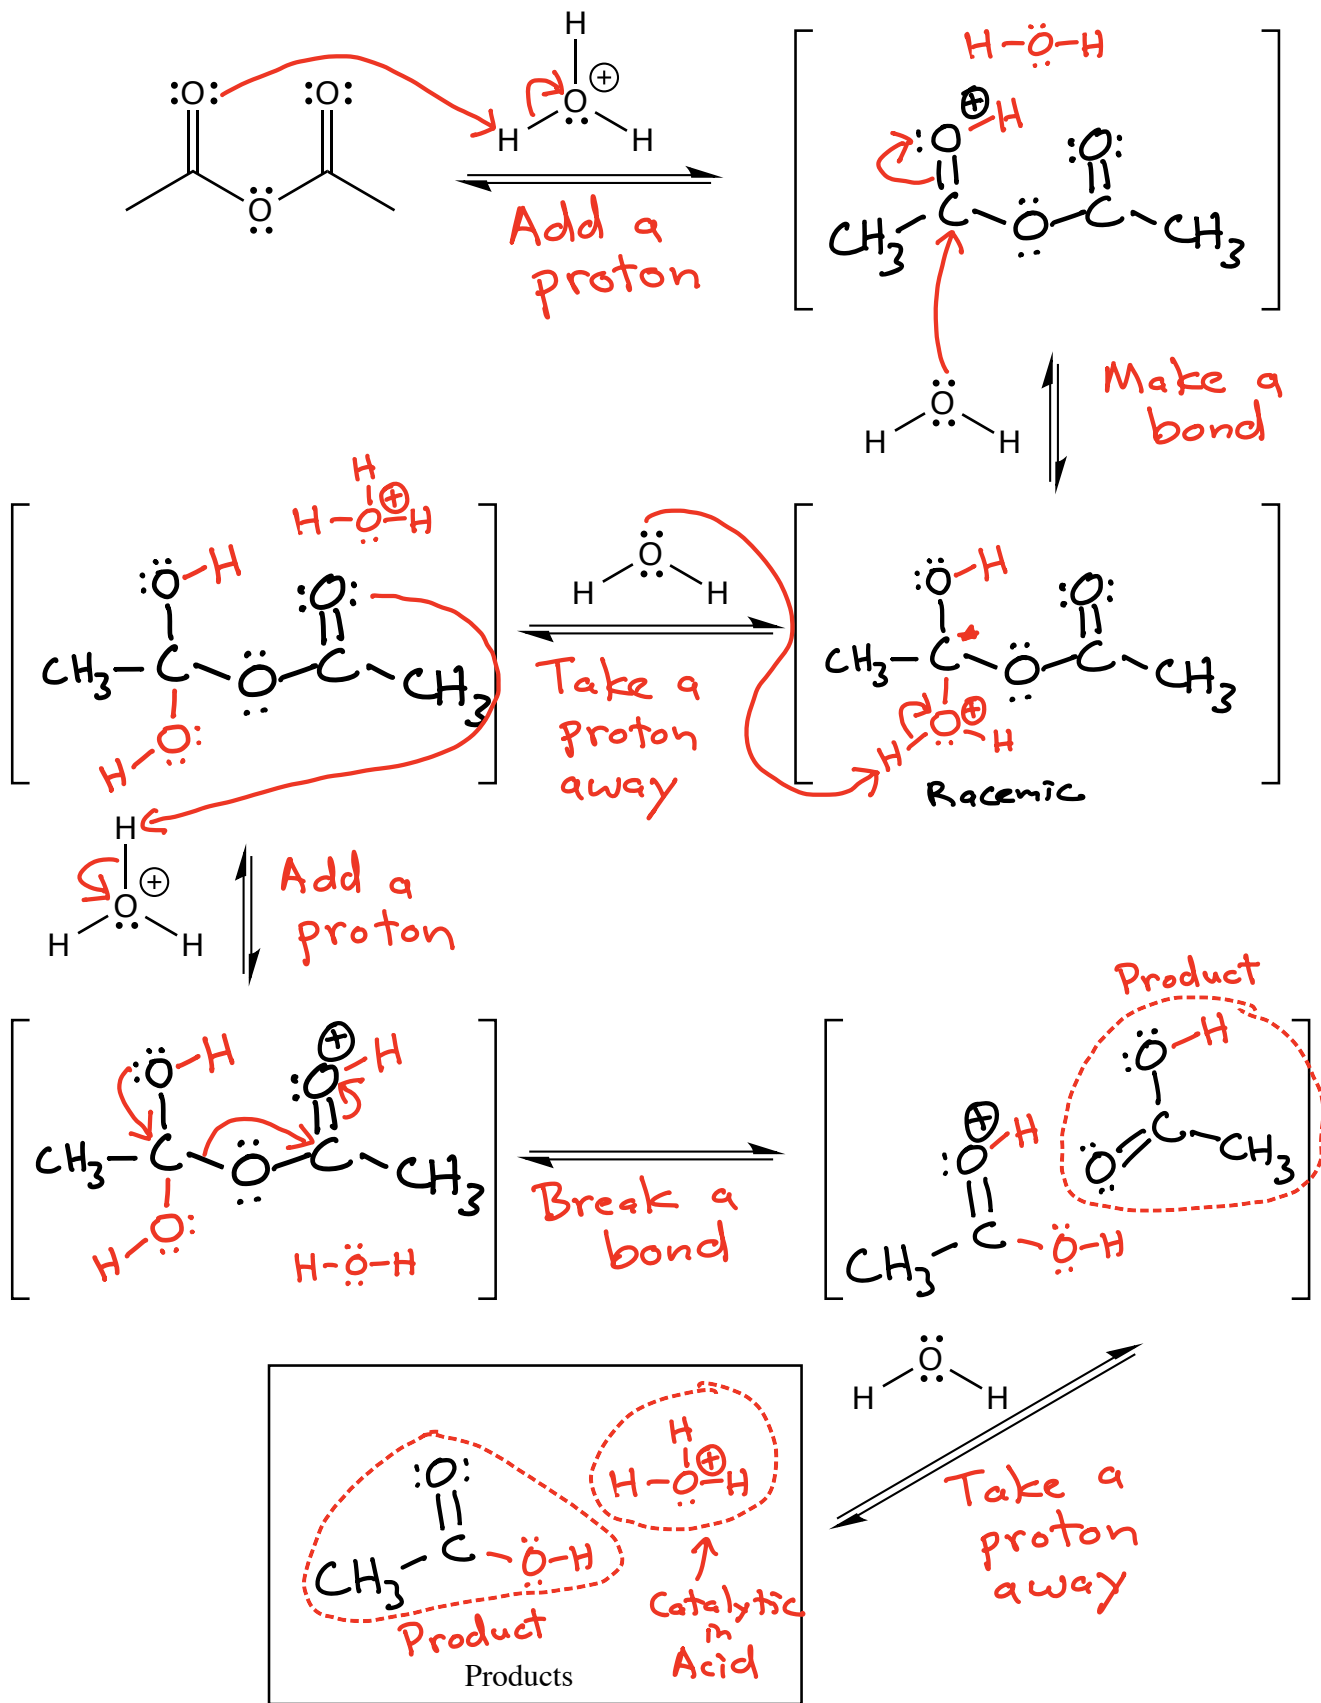 H
:O: :O: O ⊕
H H
O
Add a
proton
H–O–H
⊕
:O–H :O:
CH3 C O C CH3
O
H H
Make a
bond
H
H–O–H ⊕
:O–H :O:
CH3–C–O–C–CH3
H–O:
O
H H
Take a
proton
away
:O–H :O:
CH3–C–O–C–CH3
H–O–H ⊕
Racemic
H
O ⊕
H H
Add a
proton
:O–H :O–H ⊕
CH3–C–O–C–CH3
H–O:
H–O–H
Break a
bond
Product
:O–H
C
:O CH3
⊕
:O–H
C
CH3 O–H
O
H H
Take a
proton
away
:O:
C
CH3 O–H
Product
H
H–O–H ⊕
Catalytic
in
Acid
Products